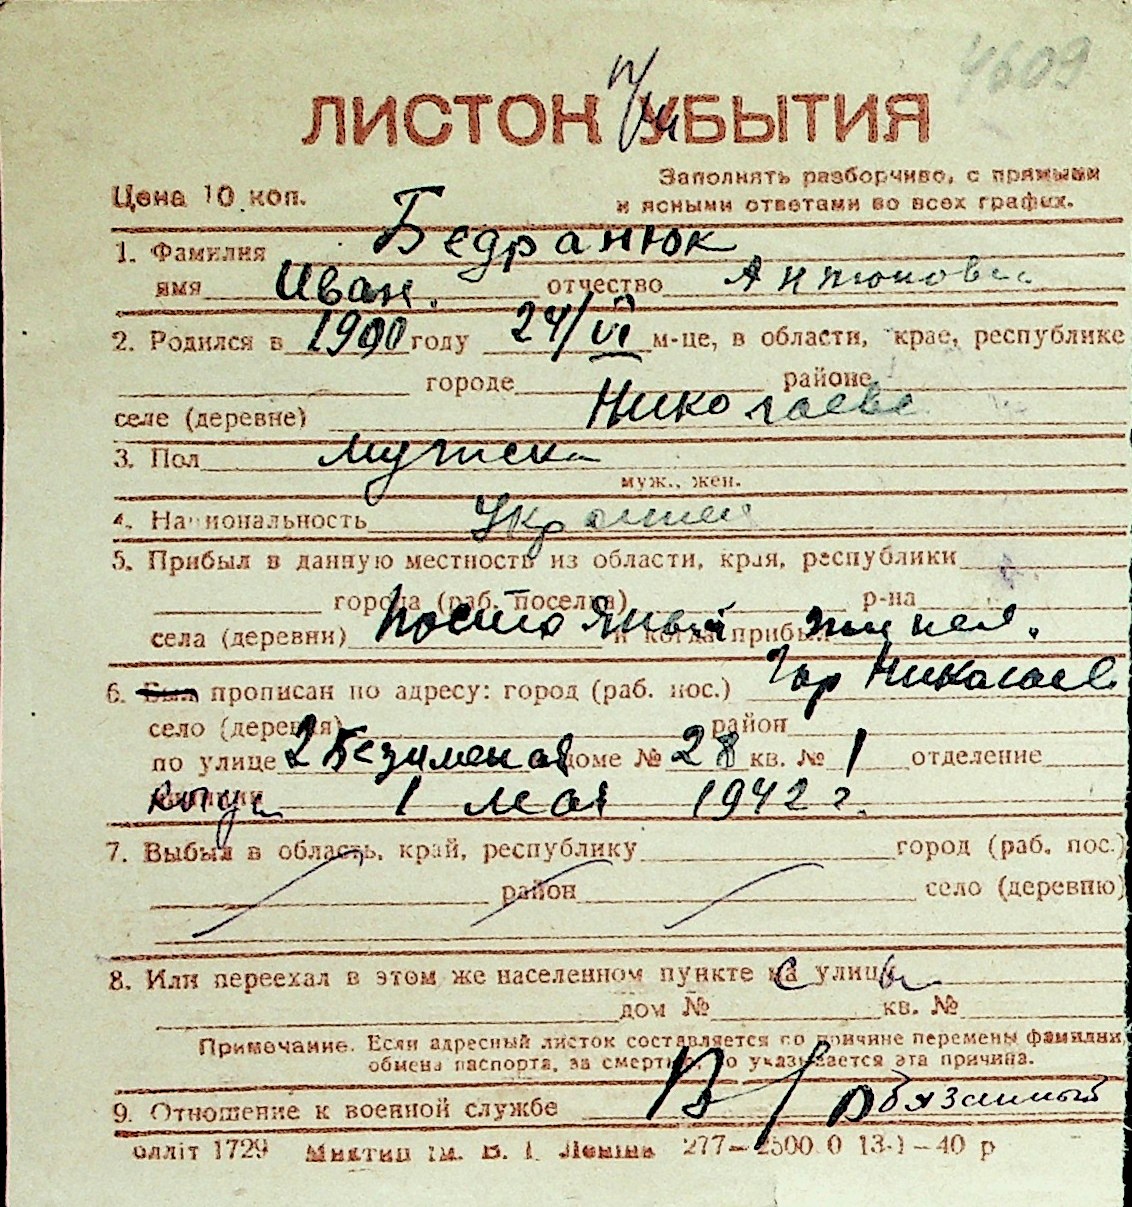 4609
ЛИСТОК УБЫТИЯ
Цена 10 коп.
Заполнять разборчиво, с прямыми
и ясными ответами во всех графах.
1. Фамилия Бедранюк
имя Иван. отчество Антонович
2. Родился в 1900 году 24/VI м-це, в области, крае, республике
городе районе
селе (деревне) Николаеве
3. Пол мужска
муж., жен.
4. Национальность Украинец
5. Прибыл в данную местность из области, края, республики
города (раб. поселка) р-на
села (деревни) Постояный и когда прибыл жител.
6. Был прописан по адресу: город (раб. пос.) Гор Николаев
село (деревня) район
по улице 2 Безименая доме № 28 кв. № 1 отделение
1 мая 1942 г.
7. Выбыл в область, край, республику город (раб. пос.)
район село (деревню)
8. Или переехал в этом же населенном пункте на улицу
дом № кв. №
Примечание. Если адресный листок составляется по причине перемены фамилии,
обмена паспорта, за смертью, то указывается эта причина.
9. Отношение к военной службе В/обязанный
олліт 1729 Миктип ім. В. І. Леніна 277—2500 0 13-1—40 р